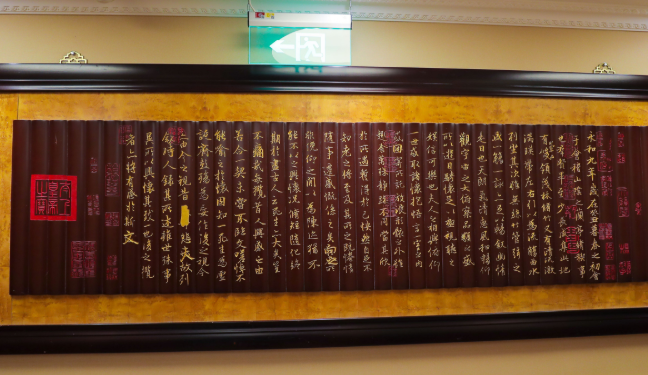 永和九年歲在癸丑暮春之初會
于會稽山陰之蘭亭脩稧事
也羣賢畢至少長咸集此地
有崇山峻領茂林脩竹又有清流激
湍暎帶左右引以為流觴曲水
列坐其次雖無絲竹管弦之
盛一觴一詠亦足以暢叙幽情
是日也天朗氣清惠風和暢仰
觀宇宙之大俯察品類之盛
所以遊目騁懷足以極視聽之
娛信可樂也夫人之相與俯仰
一世或取諸懷抱悟言一室之內
或因寄所託放浪形骸之外雖
趣舍萬殊靜躁不同當其欣
於所遇蹔得於己怏然自足不
知老之將至及其所之既惓情
隨事遷感慨係之矣向之所欣
俛仰之閒以為陳迹猶不
能不以之興懷況脩短隨化終
期於盡古人云死生亦大矣豈
不痛哉每攬昔人興感之由
若合一契未嘗不臨文嗟悼不
能喻之於懷固知一死生為虛
誕齊彭殤為妄作後之視今
亦由今之視昔悲夫故列
敘時人錄其所述雖世殊事
異所以興懷其致一也後之攬
者亦將有感於斯文